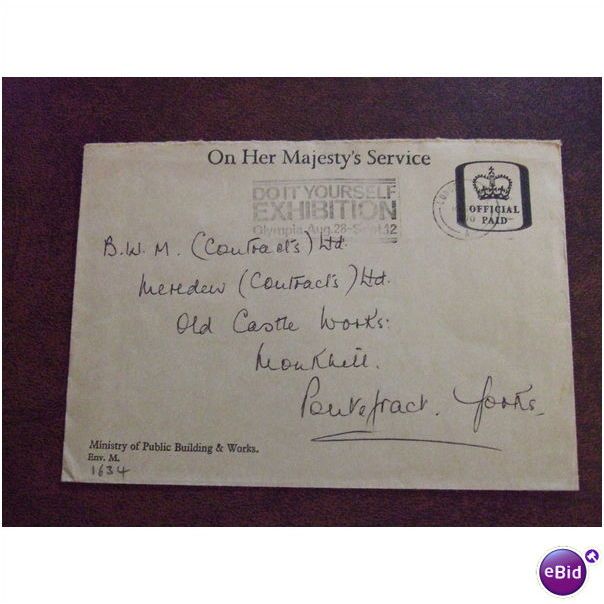 On Her Majesty's Service
DO IT YOURSELF
EXHIBITION
Olympia Aug. 28-Sept. 12
OFFICIAL
PAID
B.W.M. (Contracts) Ltd.
Meredew (Contracts) Ltd.
Old Castle Works.
Monkhill.
Pontefract. Yorks.
Ministry of Public Building & Works.
Env. M.
1634
eBid